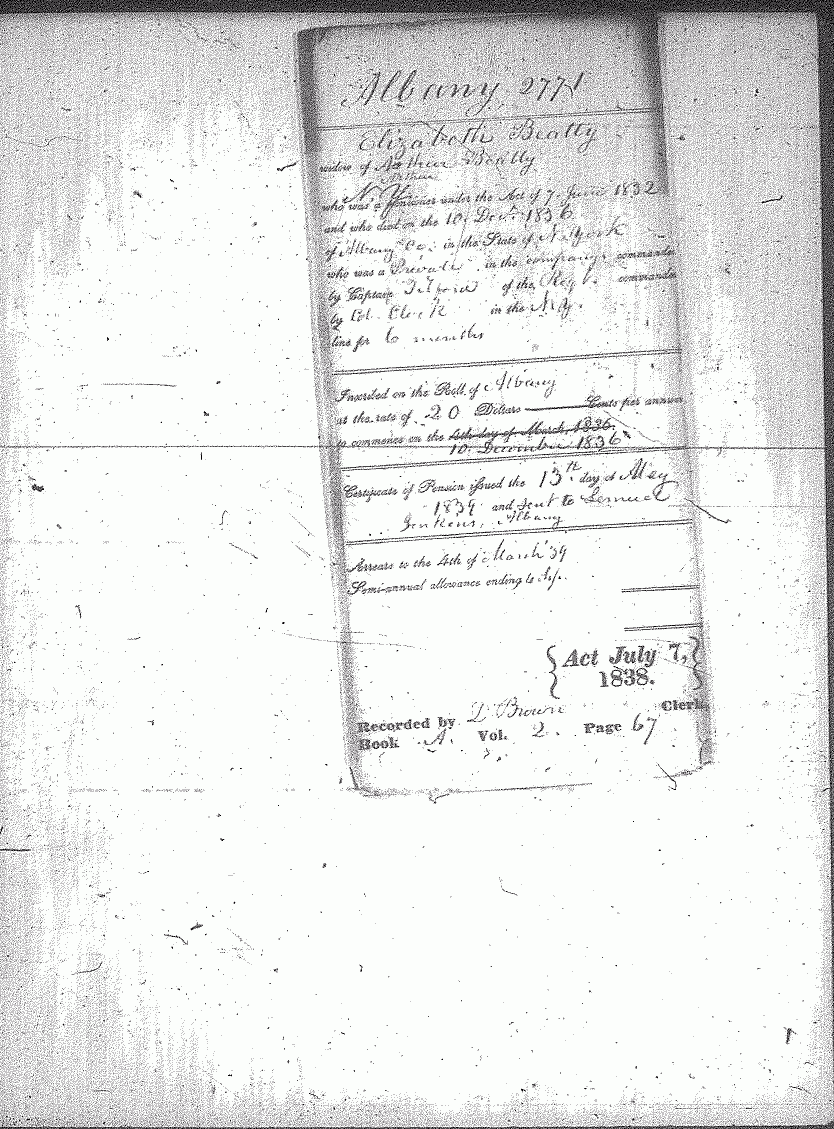 Albany 2771
Elizabeth Beatty
widow of Arthur Beatty
Arthur
N. Y.
who was a Pensioner under the Act of 7. June 1832
and who died on the 10. Decr. 1836
of Albany Co. in the State of N. York
who was a Private in the company commanded
by Captain of the Regt. commanded
by Col. in the N.Y.
line for 6 months
Inscribed on the Roll of Albany
at the rate of 20 Dollars —— Cents per annum
to commence on the 4th day of March, 1836.
10. December 1836
Certificate of Pension issued the 13th day of May
1839 and sent to Lemuel
Jenkens, Albany
Arrears to the 4th of March '39
Semi-annual allowance ending
Act July 7,
1838.
Recorded by D Brown Clerk
Book A. Vol. 2. Page 67